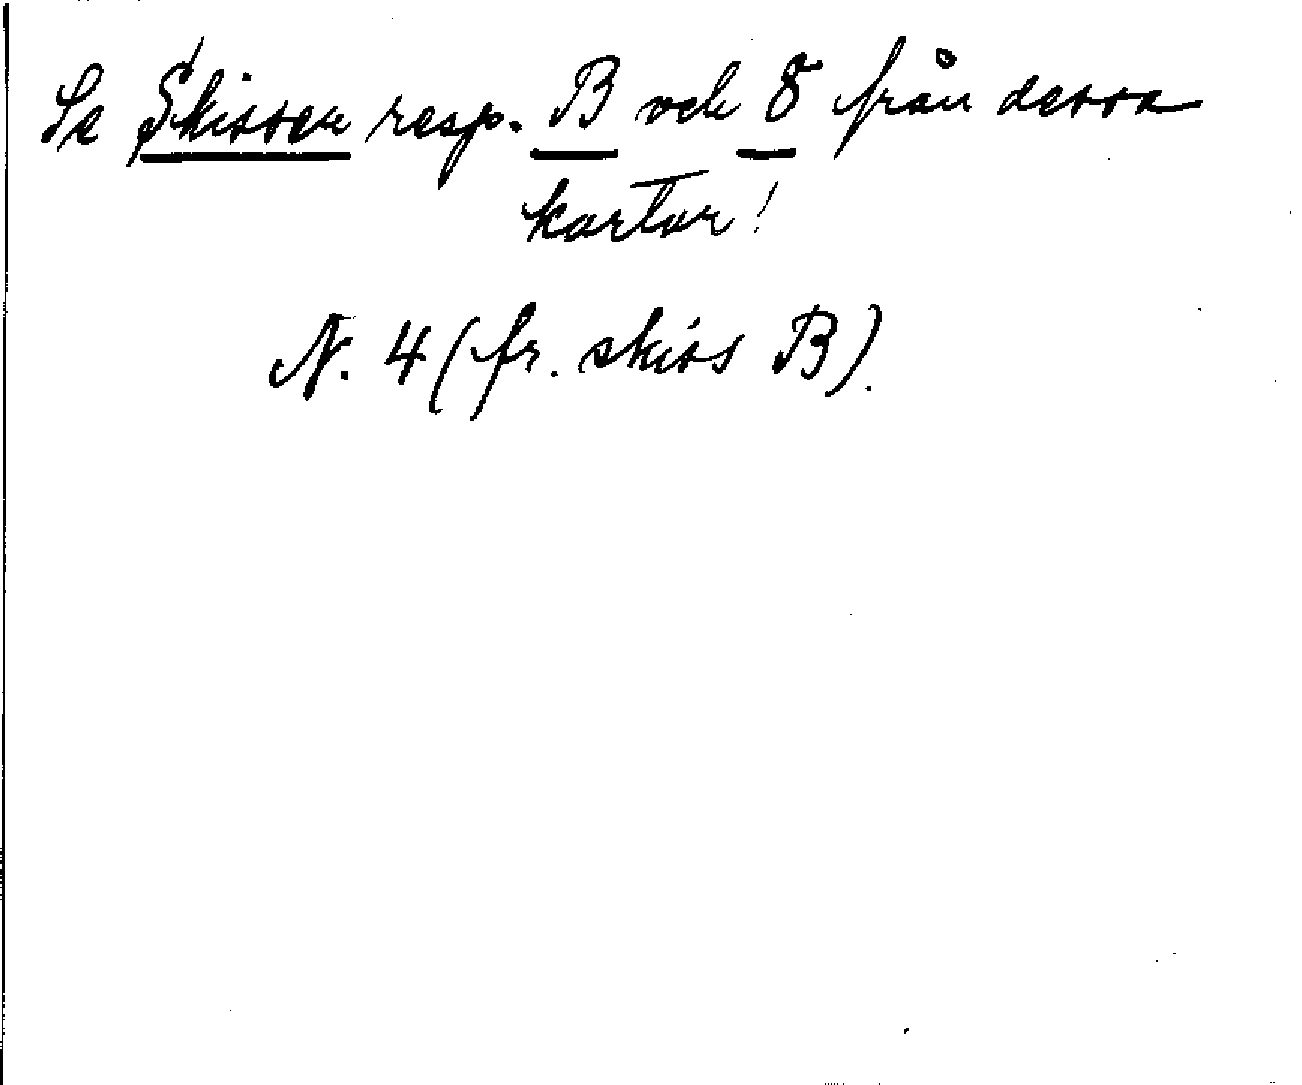 Se Skissen resp. B och 8 från dessa
kartor!
N. 4 (fr. skiss B).